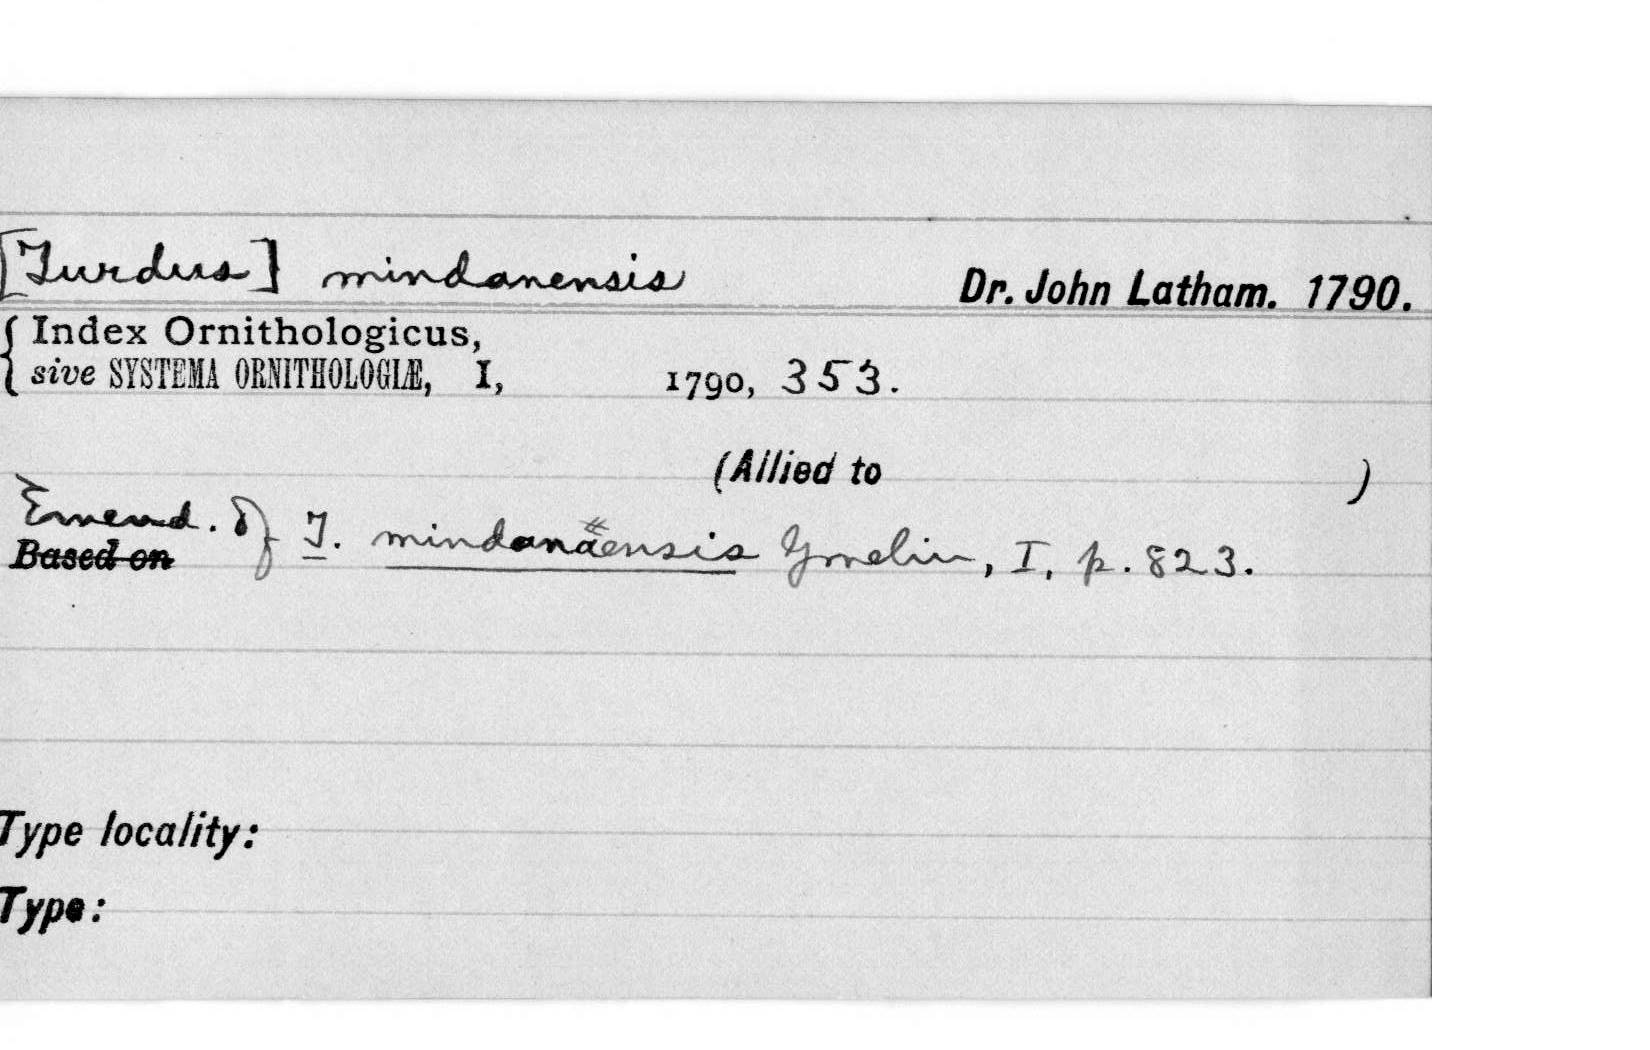 [Turdus] mindanensis Dr. John Latham. 1790.
Index Ornithologicus,
sive SYSTEMA ORNITHOLOGIÆ, I, 1790, 353.
(Allied to )
Emend. of T. mindanaensis Gmelin, I, p. 823.
Based on
Type locality:
Type: